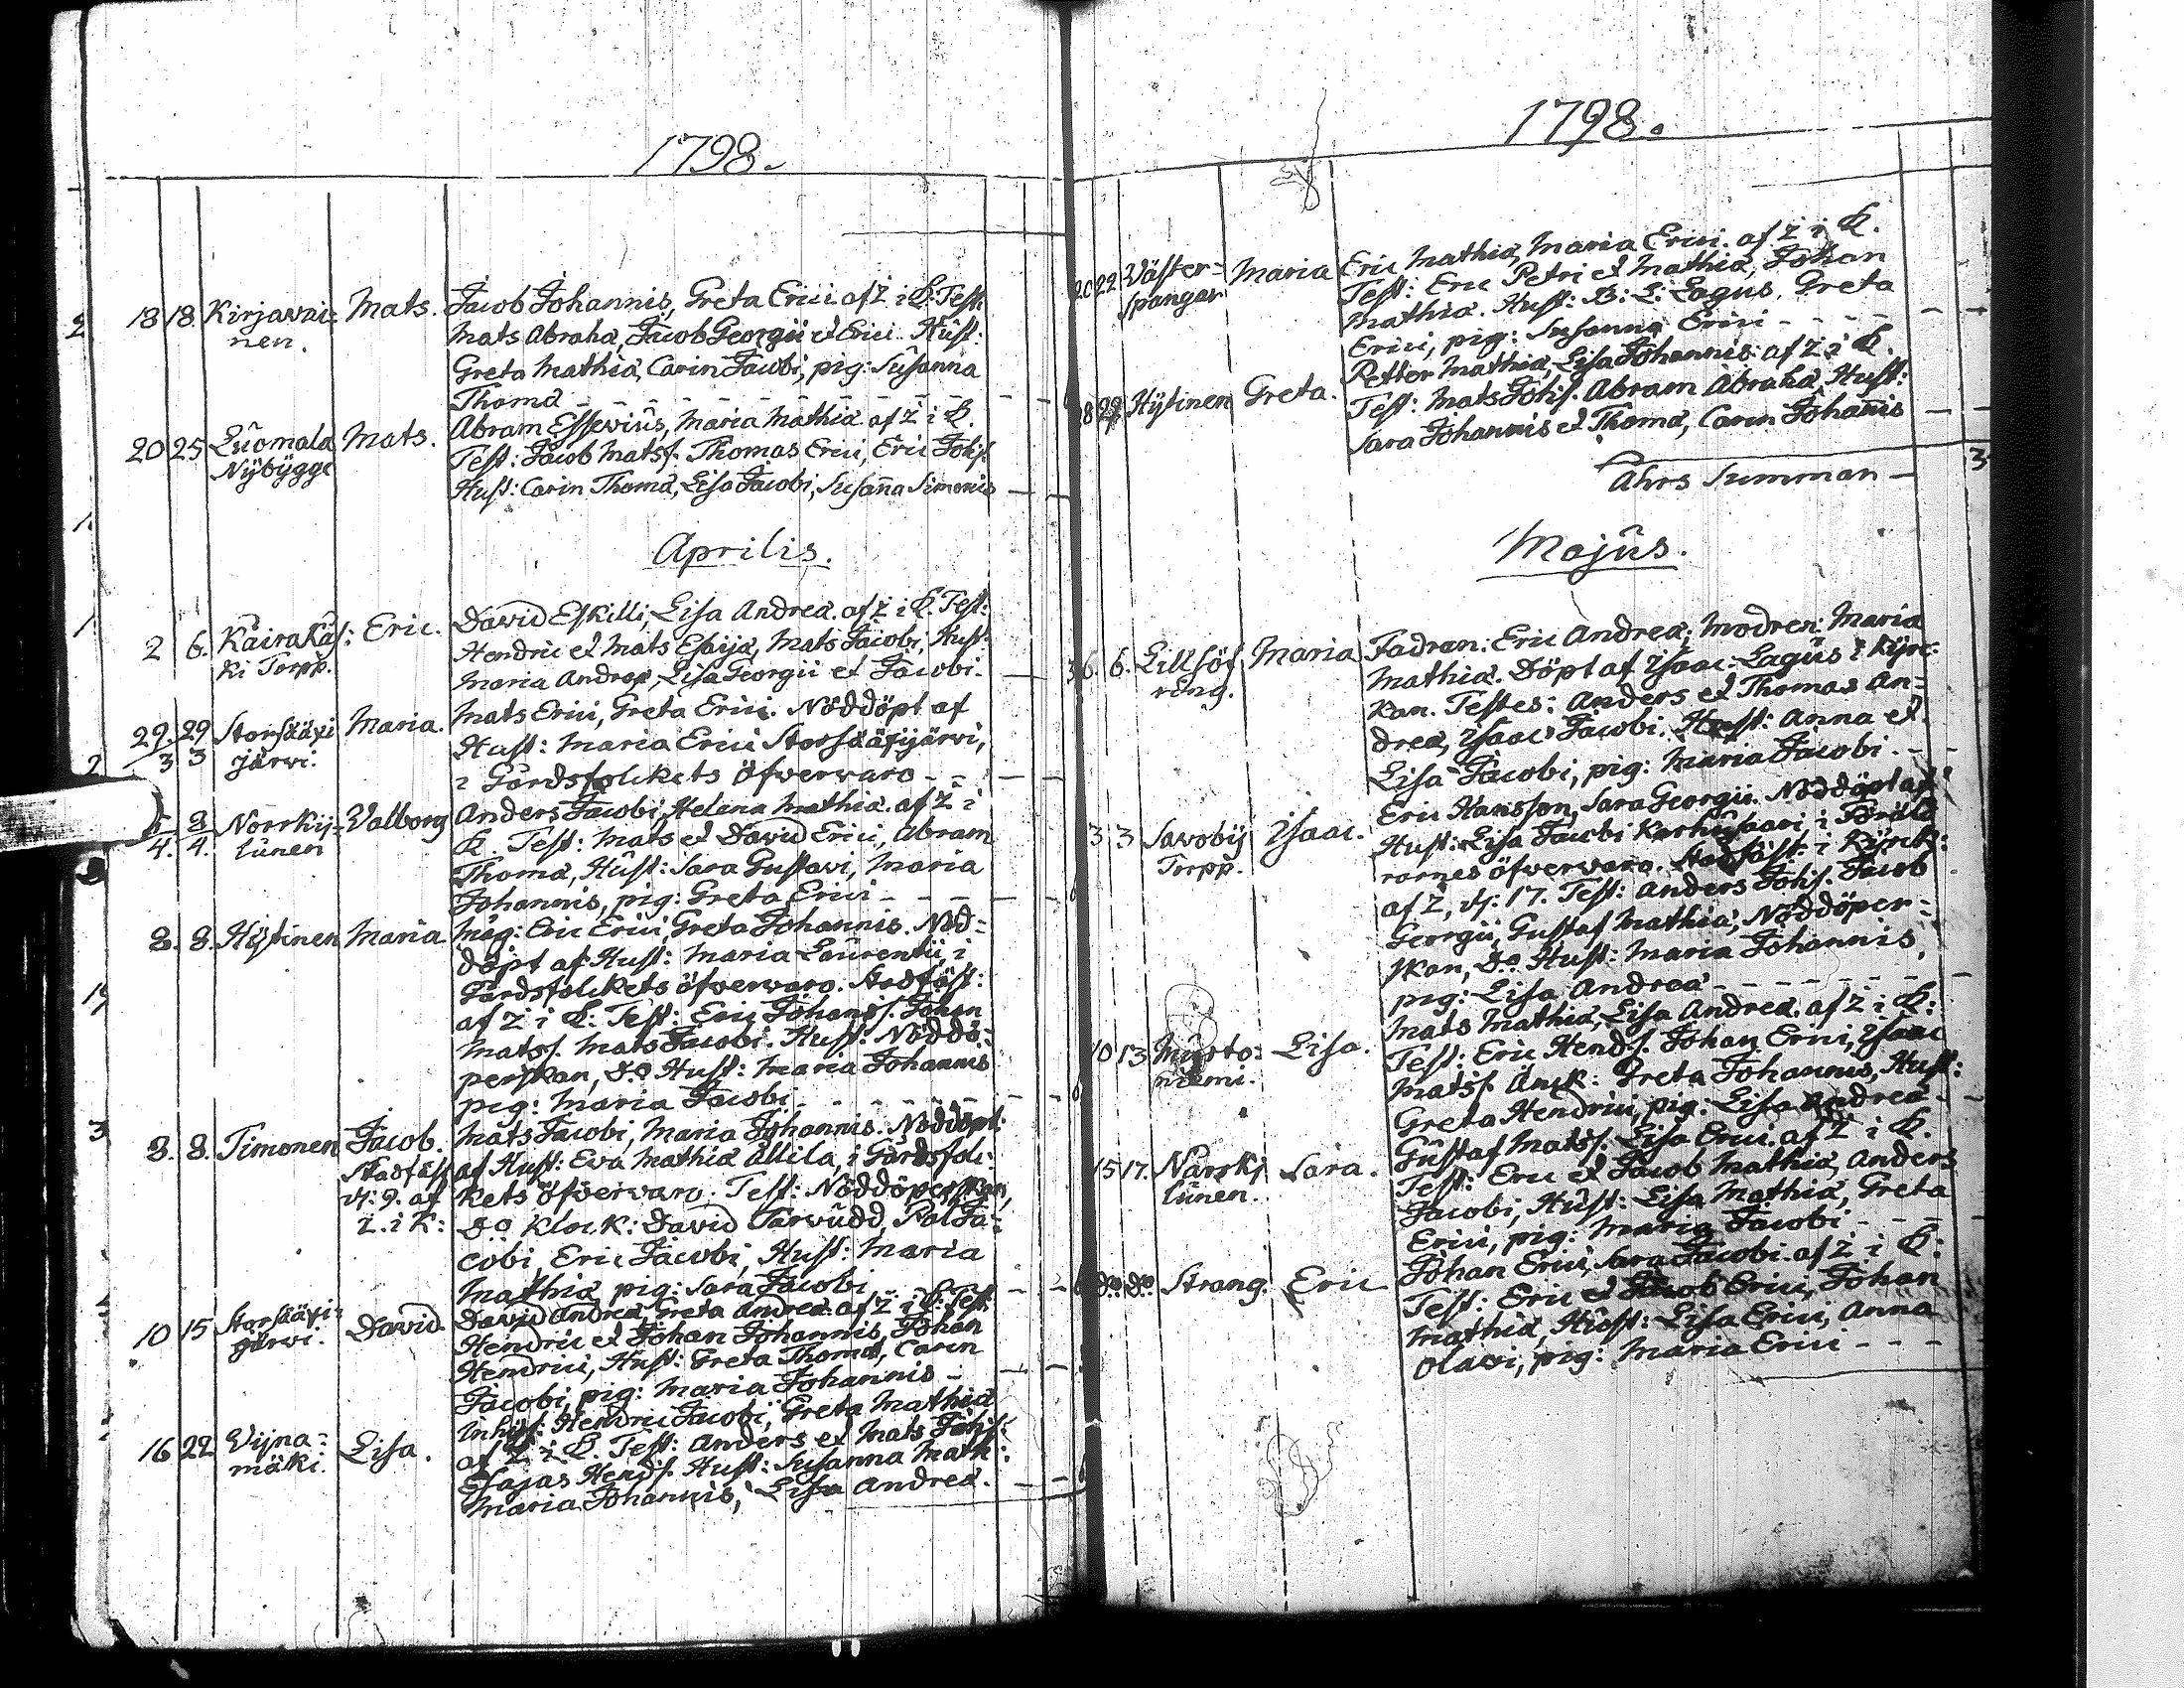 1798.
18 18. Kirjawai= Mats. Jacob Johannis, Greta Erici. af Z i K: Test:
nen. Mats Abrahā, Jacob Georgii et Erici. Hust:
Greta Mathiæ, Carin Jacobi, pig: Susanna
Thomæ
20 25 Luomala Mats. Abram Essevius, Maria Mathiæ. af Z i K.
Nybygge Test: Jacob Matss. Thomas Erici, Eric Johs.
Hust: Carin Thomæ, Lisa Jacobi, Susanna Simonis
Aprilis.
2 6. Kairakas: Eric. David Eskilli, Lisa Andreæ. af Z i K. Test:
ki Torpp. Hendric et Mats Esaiæ, Mats Jacobi, Hust:
Maria Andreæ, Lisa Georgii et Jacobi.
29. 29 Storsääxi Maria. Mats Erici, Greta Erici. Nöddöpt af
3 3 järvi. Hust: Maria Erici Storsääxijärvi,
i Gårdsfolckets öfvervaro
8 Norrky= Valborg Anders Jacobi, Helena Mathiæ. af Z i
4. 4. lunen K. Test: Mats et David Erici, Abram
Thomæ, Hust: Sara Gustavi, Maria
Johannis, pig: Greta Erici
8. 8. Hytinen Maria Måg: Eric Erici, Greta Johannis. Nöd=
döpt af Hust: Maria Laurentii, i
Gårdsfolckets öfvervaro. Stadfäst:
af Z i K: Test: Eric Johaniss. Johan
Matss. Mats Jacobi. Hust: Nöddö=
perskan, do Hust: Maria Johannis
pig: Maria Jacobi
8. 8. Timonen Jacob. Mats Jacobi, Maria Johannis. Nöddöpt:
Stadfäst af Hust: Eva Mathiæ Allila, i Gårdsfolc=
d: 9. af kets öfvervaro. Test: Nöddöperskan,
Z. i K: do Klock: David Tarvudd, Pål Ja=
cobi, Eric Jacobi, Hust: Maria
Mathiæ, pig: Sara Jacobi
10 15 Storsääxi= David. David Andreæ, Greta Andreæ. af Z i K: Test:
järvi. Hendric et Johan Johannis, Johan
Hendrici, Hust: Greta Thomæ, Carin
Jacobi, pig: Maria Johannis
16 22 Vijna= Lisa. Inhys: Hendric Jacobi, Greta Mathiæ
mäki. af Z i K. Test: Anders et Mats Johs.
Esajas Hends. Hust: Susanna Math:
Maria Johannis, Lisa Andreæ.
1798.
20 22 Väster= Maria Eric Mathiæ, Maria Erici. af Z i K.
spangar Test: Eric Petri et Mathiæ, Johan
Mathiæ. Hust: B: L: Lagus, Greta
Erici, pig: Susanna Erici
28 29 Hytinen Greta. Petter Mathiæ, Lisa Johannis. af Z i K.
Test: Mats Johs. Abram Abrahā, Hust:
Sara Johannis et Thomæ, Carin Johannis
Åhrs Summan 3
Majus.
6. 6. Lillsjöf Maria Fadren: Eric Andreæ; Modren: Maria
ring. Mathiæ. Döpt af Isaac: Lagus i Kyrc:
kan. Testes: Anders et Thomas An=
dreæ, Isaac Jacobi. Hust: Anna et
Lisa Jacobi, pig: Maria Jacobi.
3 3 Savoby Isaac. Eric Hansson, Sara Georgii. Nöddöpt af
Torpp. Hust: Lisa Jacobi Karhusaari, i Föräld
rarnes öfvervaro. Stadfäst: i Kyrck:
af Z, d: 17. Test: Anders Johs. Jacob
Georgii, Gustaf Mathiæ, Nöddöper=
skan, do Hust: Maria Johannis,
pig: Lisa Andreæ
10 13 Musto= Lisa. Mats Mathiæ, Lisa Andreæ. af Z i K:
niemi. Test: Eric Hends. Johan Erici, Isaac
Matss. Änck: Greta Johannis, Hust:
Greta Hendrici, pig: Lisa Andreæ
15 17. Närsky Sara. Gustaf Matss. Lisa Erici. af Z i K.
lunen. Test: Eric et Jacob Mathiæ, Anders
Jacobi, Hust: Lisa Mathiæ, Greta
Erici, pig: Maria Jacobi
do do Strang. Eric Johan Erici, Sara Jacobi. af Z i K:
Test: Eric et Jacob Erici, Johan
Mathiæ, Hust: Lisa Erici, Anna
Olavi, pig: Maria Erici